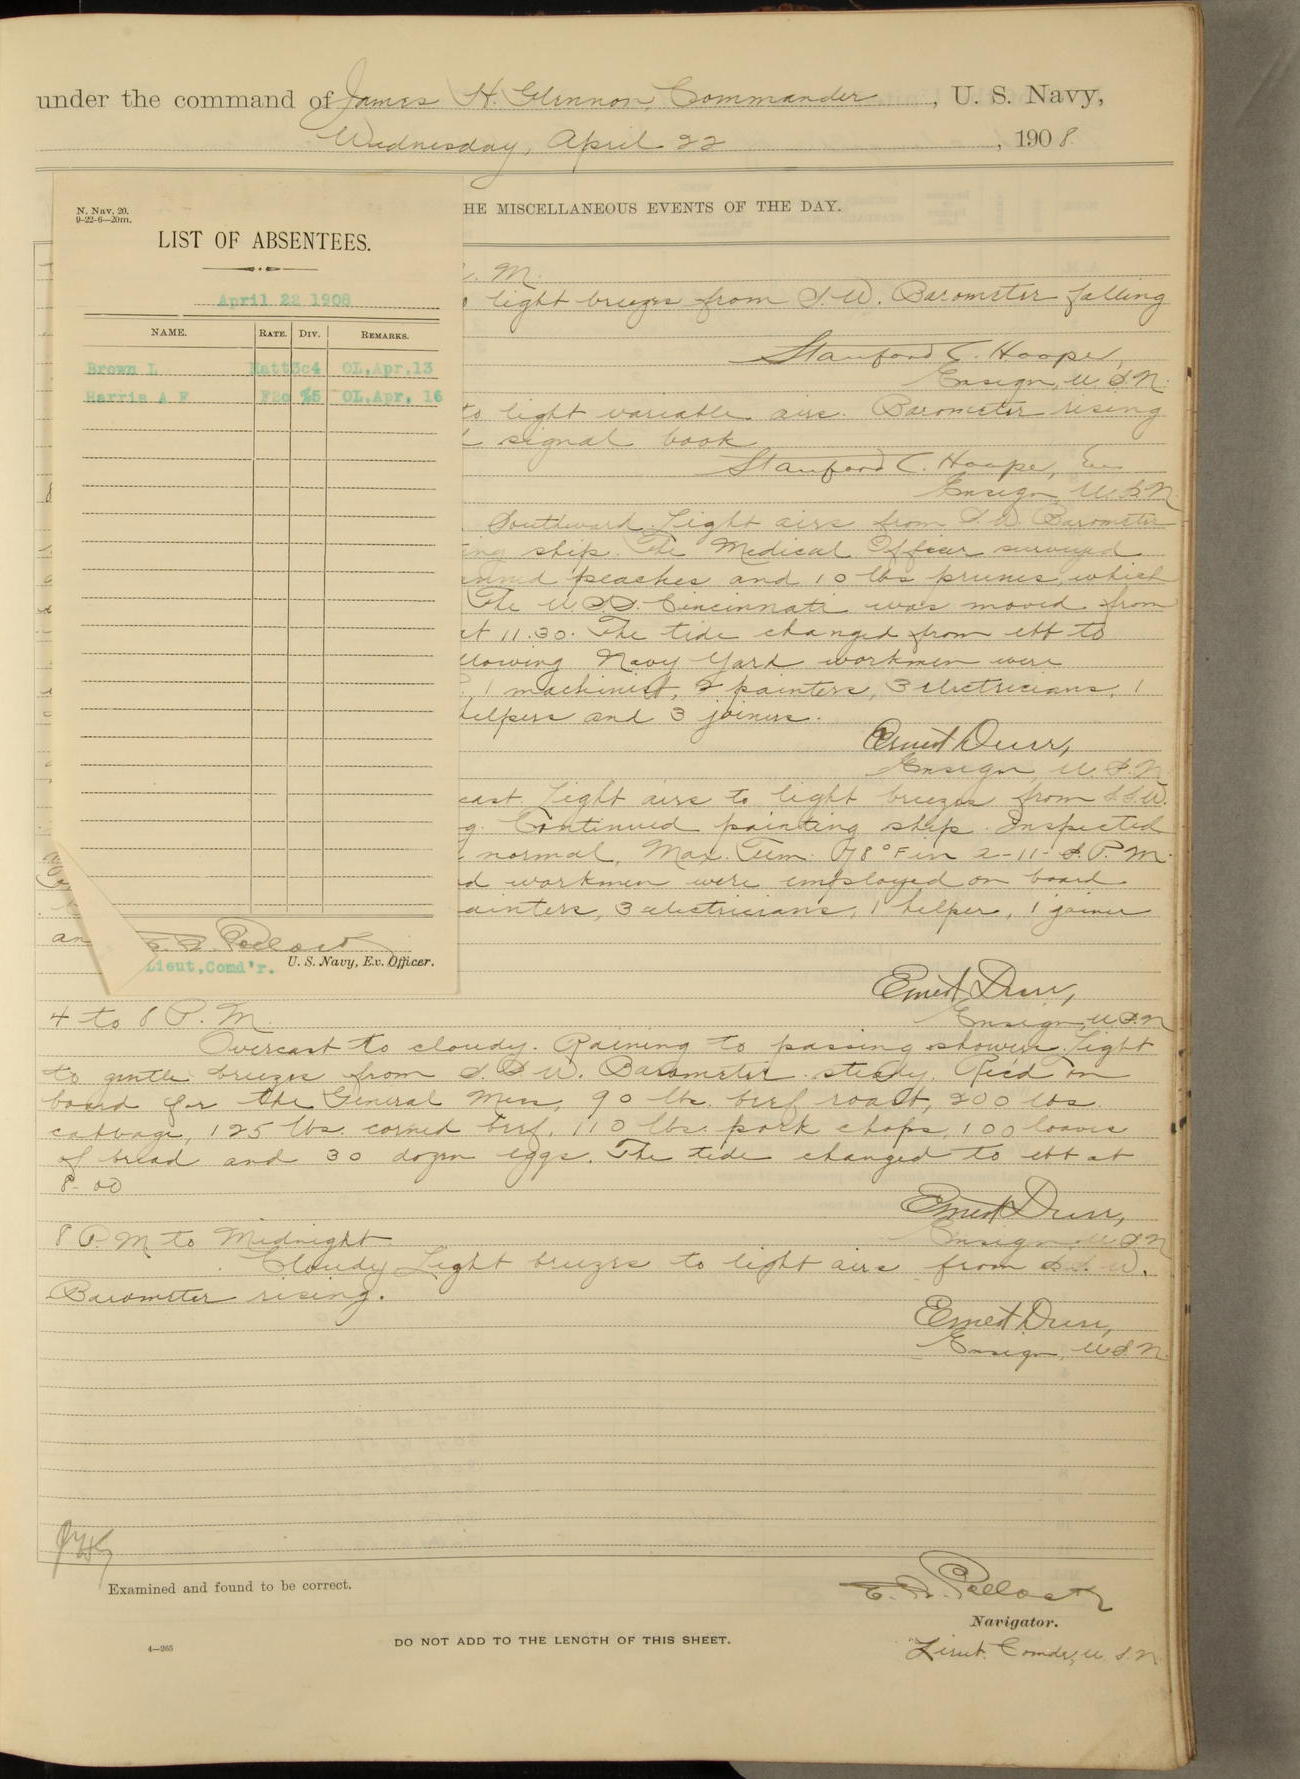 under the command of James H. Glennon, Commander, U. S. Navy,
Wednesday, April 22, 1908.
HE MISCELLANEOUS EVENTS OF THE DAY.
N. Nav. 20.
9-22-6—20m.
LIST OF ABSENTEES.
April 22 1908
NAME. RATE. DIV. REMARKS.
Brown L Matt3c4 OL,Apr,13
Harris A F F2c 5 OL,Apr, 16
U. S. Navy, Ex. Officer.
Lieut,Comd'r.
. M.
light breezes from S.W. Barometer falling
Stanford C. Hooper,
Ensign, U.S.N.
to light variable airs. Barometer rising
signal book
Stanford C. Hooper,
Ensign, U.S.N.
Southward. Light airs from S.W. Barometer
ing ship. The Medical Officer surveyed
anned peaches and 10 lbs prunes, which
The U.S.S. Cincinnati was moved from
at 11.30. The tide changed from ebb to
llowing Navy Yard workmen were
1 machinist, 2 painters, 3 electricians, 1
helpers and 3 joiners.
Ernest Durr,
Ensign, U.S.N.
cast Light airs to light breezes from S.S.W.
g. Continued painting ship. Inspected
normal, Max. Tem. 98°F in 2-11-S. P.M.
d workmen were employed on board
ainters, 3 electricians, 1 helper, 1 joiner
an
Ernest Durr,
Ensign, U.S.N
4 to 8 P. M.
Overcast to cloudy. Raining to passing showers. Light
to gentle breezes from S.S.W. Barometer steady. Rec'd on
board for the General Mess, 90 lbs. beef roast, 200 lbs.
cabbage, 125 lbs. corned beef, 110 lbs. pork chops, 100 loaves
of bread and 30 dozen eggs. The tide changed to ebb at
8-00
Ernest Durr,
Ensign, U.S.N
8 P.M to Midnight
Cloudy Light breezes to light airs from S.S.W.
Barometer rising.
Ernest Durr,
Ensign, U.S.N.
Examined and found to be correct.
Navigator.
4—265
DO NOT ADD TO THE LENGTH OF THIS SHEET.
Lieut. Comdr, U.S.N.